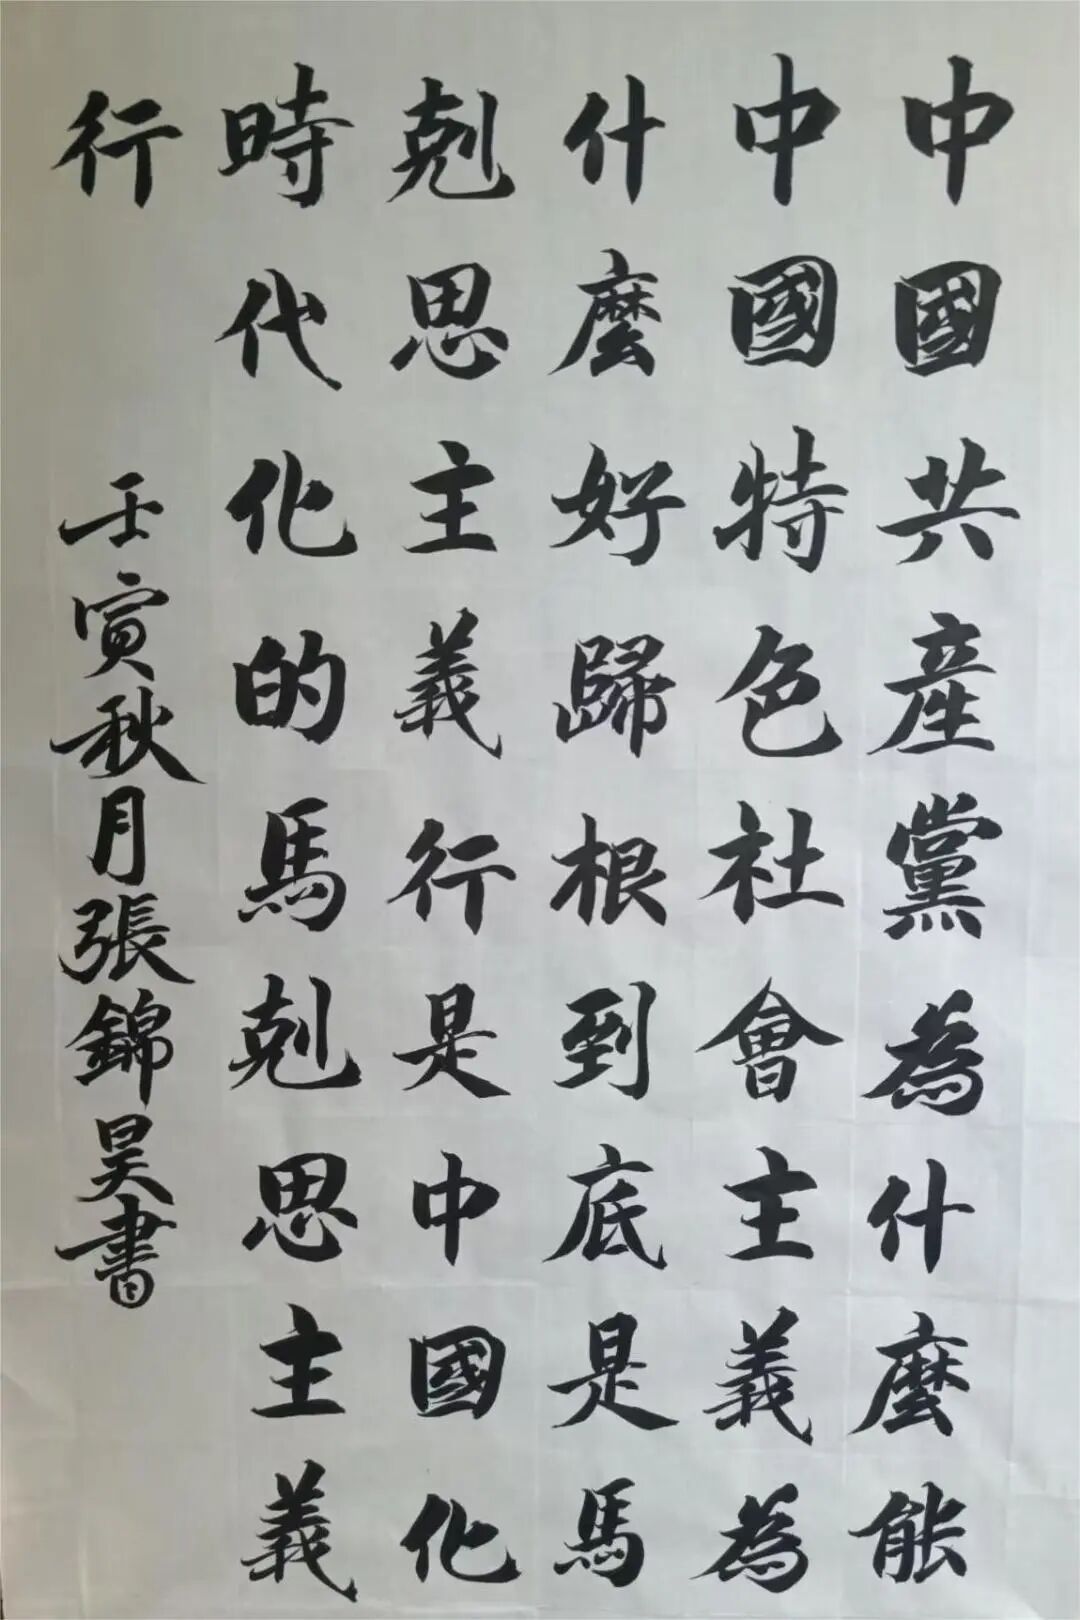 中國共產黨為什麼能
中國特色社會主義為
什麼好歸根到底是馬
剋思主義行是中國化
時代化的馬剋思主義
行
壬寅秋月張錦昊書